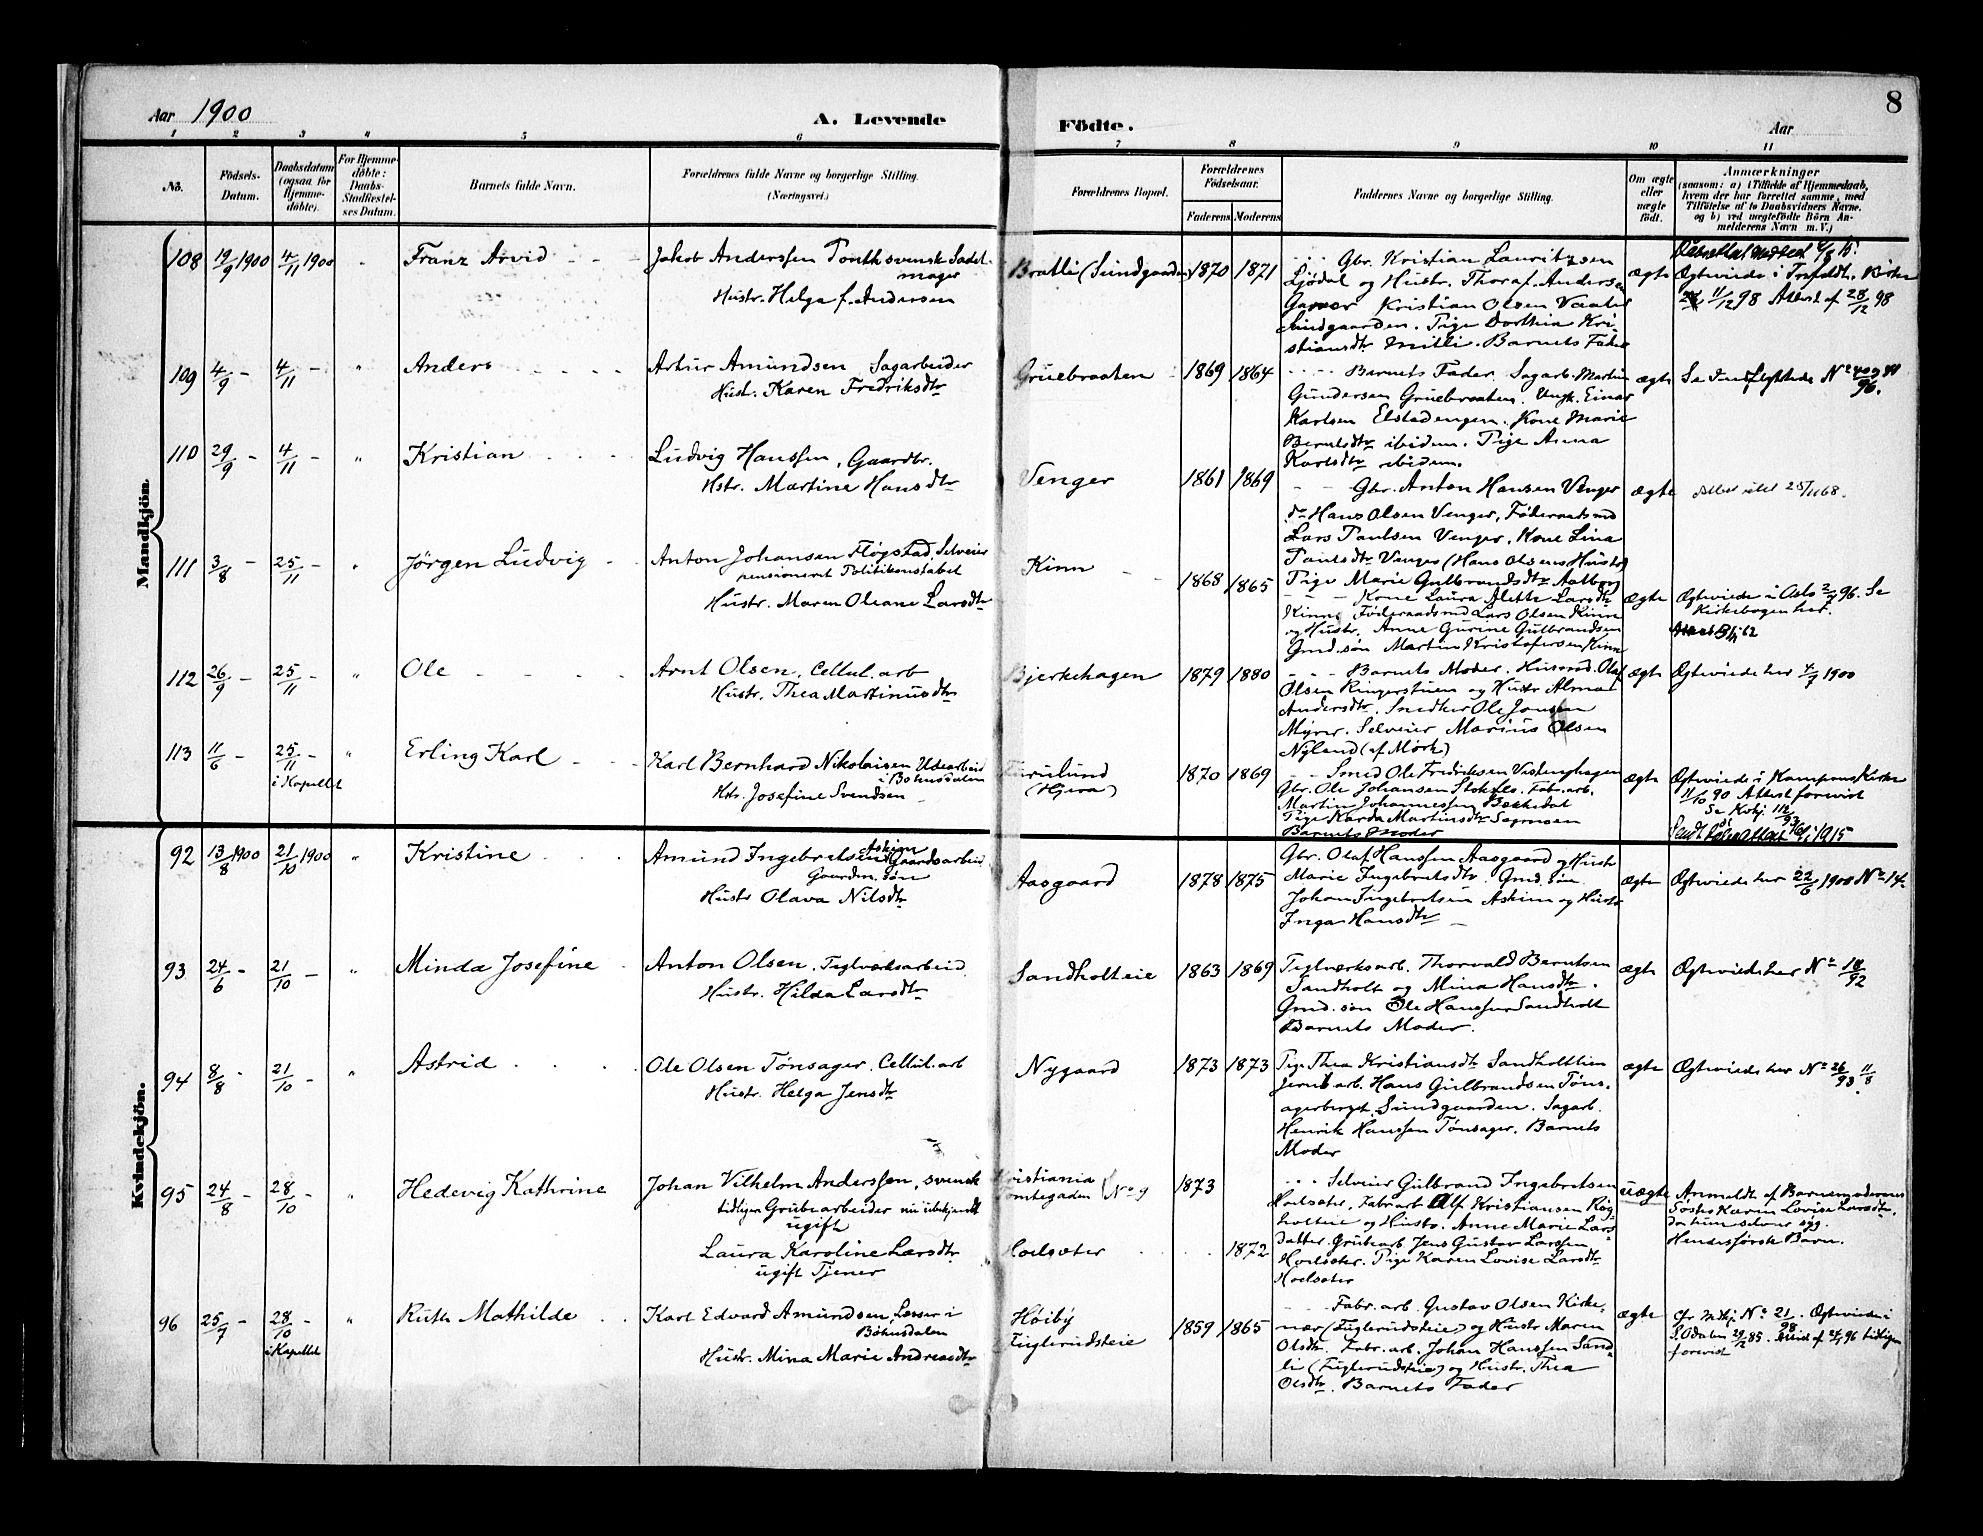 Aar 1900
A. Levende
Fødte.
Aar
8
1 2 3 4 5 6 7 8 9 10 11
No.
Fødsels-
Datum.
Daabsdatum
(ogsaa for
Hjemme-
døbte).
For Hjemme-
døbte:
Daabs-
Stadfæstel-
ses Datum.
Barnets fulde Navn.
Forældrenes fulde Navne og borgerlige Stilling.
(Næringsvei.)
Forældrenes Bopæl.
Forældrenes
Fødselsaar.
Faderens Moderens
Faddernes Navne og borgerlige Stilling.
Om ægte
eller
uægte
født.
Anmærkninger
(saasom: a) i Tilfælde af Hjemmedaab,
hvem der har forrettet samme, med
Tilføielse af to Daabsvidners Navne.
og b) ved uægtefødte Børn An-
melderens Navn m. V.)
Mandkjön.
108 19/9 1900 4/11 1900 Franz Arvid
Jakob Anderssen Tonth svensk Sadel
mager
Hustr. Helga f. Andersen
Bratli (Sundgaarden) 1870 1871
Gbr. Kristian Lauritzsen
Sjödal og Hustr. Thora f. Andersen
Kristian Olsen
Sundgaarden. Pige Dorthia Kri-
stiansdtr Mitli. Barnets Fader
ægte
Ægteviede i Trefoldh. Kirke
11/12 98 Attest af 28/12 98
109 4/9 - 4/11 - " Anders
Artur Amundsen Sagarbeider
Hust. Karen Fredriksdtr
Gruebraaten 1869 1864
Barnets Fader. Sagarb. Martin
Gundersen Gruebraaten. Ungk. Einar
Karlsen Elstadengen. Kone Marie
Berntsdtr ibidem. Pige Anna
Karlsdtr ibidem.
ægte
Se Indflyttede No 40 og 41
96.
110 29/9 - 4/11 - " Kristian
Ludvig Hanssen, Gaardbr.
Hstr. Martine Hansdtr
Venger 1861 1869
Gbr. Anton Hansen Venger
do Hans Olsen Venger, Föderaadsmd
Lars Paulsen Venger, Kone Lina
Paulsdtr Venger (Hans Olsens Hustr)
Pige Marie Gulbrandsdtr Aalborg
ægte
111 3/8 - 25/11 - " Jörgen Ludvig
Anton Johansen Fløgstad, Selveier
pensioneret Politikonstabel
Hustr. Maren Oleane Larsdtr
Kinn 1868 1865
Kone Laura Alette Larsdtr
Kinn, Föderaadsmd Lars Olsen Kinn
og Hustr. Anne Gurine Gulbrandsen
Gmd. søn Martin Kristofersen Kinn
ægte
Ægteviede i Aslo 2/7 96. Se
Kirkebogen her.
112 26/9 - 25/11 - " Ole
Arnt Olsen, Cellul. arb
Hustr. Thea Martinusdtr
Bjerkehagen 1879 1880
Barnets Moder. Husmd. Olaf
Olsen Ringerstuen og Hustr Alma
Andersdtr. Snedker Ole Jonsen
Myrer. Selveier Marius Olsen
Nyland (af Mørk)
ægte
Ægteviede her 4/7 1900
113 11/6 - 25/11 - " Erling Karl
i Kapellet
Karl Bernhard Nikolaisen Udearbeid
i Bohusdalen
Hstr. Josefine Svendsen
Furulund
(Hjera)
1870 1869
Smed Ole Fredriksen Vestenghagen
Gbr. Ole Johansen Stokfles. Fab. arb.
Martin Johannessen Bækkedal
Pige Karda Martinsdtr
Barnets Moder
ægte
Ægteviede i Kampens Kirke
11/10 90 Attest forevist
Se Kvkj. 112/93
1915
Kvindekjön.
92 13/8 1900 21/10 1900 " Kristine
Amund Ingebretsen Askim Gaardsarbeid
Gaardm. søn
Hustr Olava Nilsdtr
Aasgaard 1878 1875
Gbr. Olaf Hanssen Aasgaard og Hustr
Marie Ingebretsdtr. Gmd. søn
Johan Ingebretsen Askim og Hustr
Inga Hansdtr
ægte
Ægteviede her 22/6 1900 No 14
93 24/6 - 21/10 - " Minda Josefine
Anton Olsen. Teglverksarbeid.
Hustr. Hilda Larsdtr
Sandholteie 1863 1869
Teglværksarb. Thorvald Berntsen
Sandholt og Mina Hansdtr.
Gmd. søn Ole Hanssen Sandholt
Barnets Moder.
ægte
Ægteviede her No 18/92
94 8/8 - 21/10 - " Astrid
Ole Olsen Tønsager, Cellul. arb
Hustr. Helga Jensdtr
Nygaard 1873 1873
Pige Thea Kristiansdtr Sandholteien
Jernb arb. Hans Gulbrandsen Tøns-
agerberget, Sundgaarden. Sagarb.
Henrik Hanssen Tønsager. Barnets
Moder
ægte
Ægteviede her No 26/93 11/8
95 24/8 - 28/10 - " Hedevig Kathrine
Johan Vilhelm Anderssen, svensk
tidligere Grubearbeider nu ubekjendt
ugift
Laura Karoline Larsdtr
ugift Tjener
Kristiania
Tomtegaden No 9
1873
Hoelsæter 1872
Selveier Gulbrand Ingebretsen
Hoelsæter, Fabr arb Alf Kristiansen Røg-
holteie og Hustr. Anne Marie Lars
datter. Grubearb Jens Gustav Larssen
Hoelsæter. Pige Karen Lovise Larsdtr
Hoelsæter
uægte
Anmeldt af Barnemoderens
Søster Karen Lovise Larsdtr,
da hun selv er syg.
Hendes første Barn.
96 25/7 - 28/10 - " Ruth Mathilde
i Kapellet
Karl Edvard Amundsen, Læsser i
Bøhusdalen
Hustr. Mina Marie Andreasdtr
Høiby
Fuglerudsteie
1859 1865
Fabr. arb. Gustav Olsen Kirke,
nær (Fuglerudsteie) og Hustr Maren
Olsdtr. Fabr. arb. Johan Hanssen Sand-
lie (Fuglerudsteie) og Hustr. Thea
Olsdtr. Barnets Fader
ægte
Cfr Mtkj No 21/98. Ægteviede i
S. Odalen 29/12 85. Attest af 96 tidligere
forevist